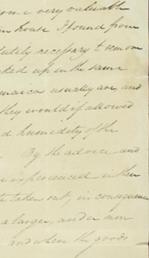 some very valuable
house I found from
lutely necessary to remove
ked up in the same
maica usually are, and
they would if allowed
d humidity of the
By the advice and
experienced in
taken out, in consequence
a larger, and a more
and when the goods